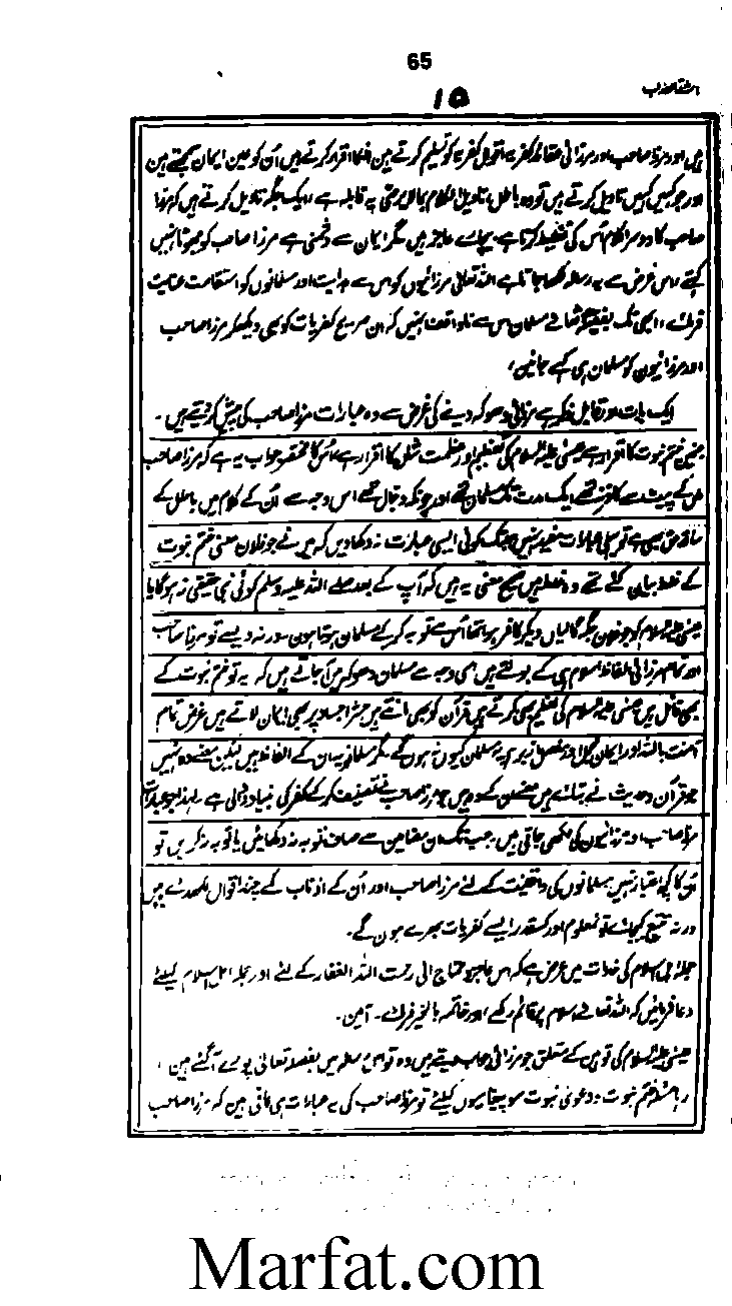 65
اشد العذاب
۱۵
ہیں اور مرزا صاحب اور مرزائی عقائد کفریہ اقوال کفریہ کو تسلیم کرتے ہیں اقرار کرتے ہیں اُن کو عین ایمان سمجھتے ہین
اور جو کہیں کہیں تاویل کرتے ہیں تو وہ باطل، تاویل الکلام بمالایرضی بہ قائلہ ہے، ایک جگہ تاویل کرتے ہیں کہ مرزا
صاحب کا دوسرا کلام اُس کی تغلیط کرتا ہے، بیچارے عاجز ہیں مگر ایمان سے دشمنی ہے مرزا صاحب کو جھوٹا نہیں
کہتے، اس غرض سے یہ رسالہ لکھا جاتا ہے اللہ تعالیٰ مرزائیوں کو اس سے ہدایت اور مسلمانوں کو استقامت عنایت
فرمائے، ابھی تک مسلمان اس سے ناواقف ہیں کہ ان صریح کفریات کو بھی دیکھکر مرزا صاحب
اور مرزائیون کو مسلمان ہی کہے جائیں،
ایک بات اور قابل ذکر ہے مرزائی دھوکہ دینے کی غرض سے وہ عبارات مرزا صاحب کی پیش کردیتے ہیں۔
جنمین ختم نبوت کا اقرار ہے عیسیٰ علیہ السلام کی تعظیم اور عظمت شان کا اقرار ہے، اُس کا مختصر جواب یہ ہے کہ مرزا صاحب
ماں کے پیٹ سے کافر نہ تھے ایک مدت تک مسلمان تھے اور چونکہ دجال تھے اس وجہ سے اُن کے کلام میں باطل کے
ساتھ حق بھی ہے تو پہلی عبارات مفید نہیں جبتک کوئی ایسی عبارت نہ دکھادیں کہ میں نے جو فلان معنی ختم نبوت
کے غلط بیان کئے تھے وہ غلط ہیں صحیح معنی یہ ہیں کہ آپ کے بعد صلے اللہ علیہ وسلم کوئی نبی حقیقی نہ ہوگا یا
عیسیٰ علیہ السلام کو جو فلان جگہ گالیاں دیکر کافر ہوا تھا اُس سے توبہ کر کے مسلمان ہوتا ہون، ورنہ ویسے تو مرزا صاحب
اور تمام مرزائی الفاظ اسلام ہی کے بولتے ہیں، اسی وجہ سے مسلمان دھوکہ میں آ جاتے ہیں کہ یہ تو ختم نبوت کے
بھی قائل ہیں عیسیٰ علیہ السلام کی تعظیم بھی کرتے ہیں قرآن کو بھی مانتے ہیں حشر اجساد پر بھی ایمان لاتے ہیں غرض تمام
آمنت باللہ اور ایمان مجمل اور مفصل پھر یہ مسلمان کیون نہ ہوں گے، مگر مسلمانو یہ ان کے الفاظ ہیں لیکن معنے وہ نہیں
جو قرآن و حدیث نے بتائے ہیں، معنے ان کے وہ ہیں جو مرزا صاحب نے تصنیف کر کے کفر کی بنیاد ڈالی ہے، لہذا جو عبارات
مرزا صاحب اور مرزائیون کی لکھی جاتی ہیں، جب تک ان مضامین سے صاف توبہ نہ دکھائیں یا توبہ نہ کریں تو
اُن کا کچھ اعتبار نہیں، مسلمانوں کی واقفیت کے لئے مرزا صاحب اور اُن کے اذناب کے چند اقوال لکھدئے ہیں
ورنہ تتبع کیجائے تو نہ معلوم اور کسقدر ایسے کفریات بھرے ہون گے۔
جملہ اہل اسلام کی خدمات میں عرض ہے کہ اس عاجز محتاج الی رحمت اللہ الغفار کے لئے اور جملہ اہل اسلام کیلئے
دعا فرمائیں کہ اللہ تعالےٰ اسلام پر قائم رکھے، اور خاتمہ بالخیر فرمائے۔ آمین۔
عیسیٰ علیہ السلام کی توہین کے متعلق جو مرزائی جواب دیتے ہیں وہ تو اس رسالہ میں بفضلہ تعالیٰ پورے آگئے ہین،
رہا مسئلہ ختم نبوت و دعویٰ نبوت سو پیغامیوں کیلئے تو مرزا صاحب کی یہ عبارات ہی کافی ہین کہ مرزا صاحب
Marfat.com